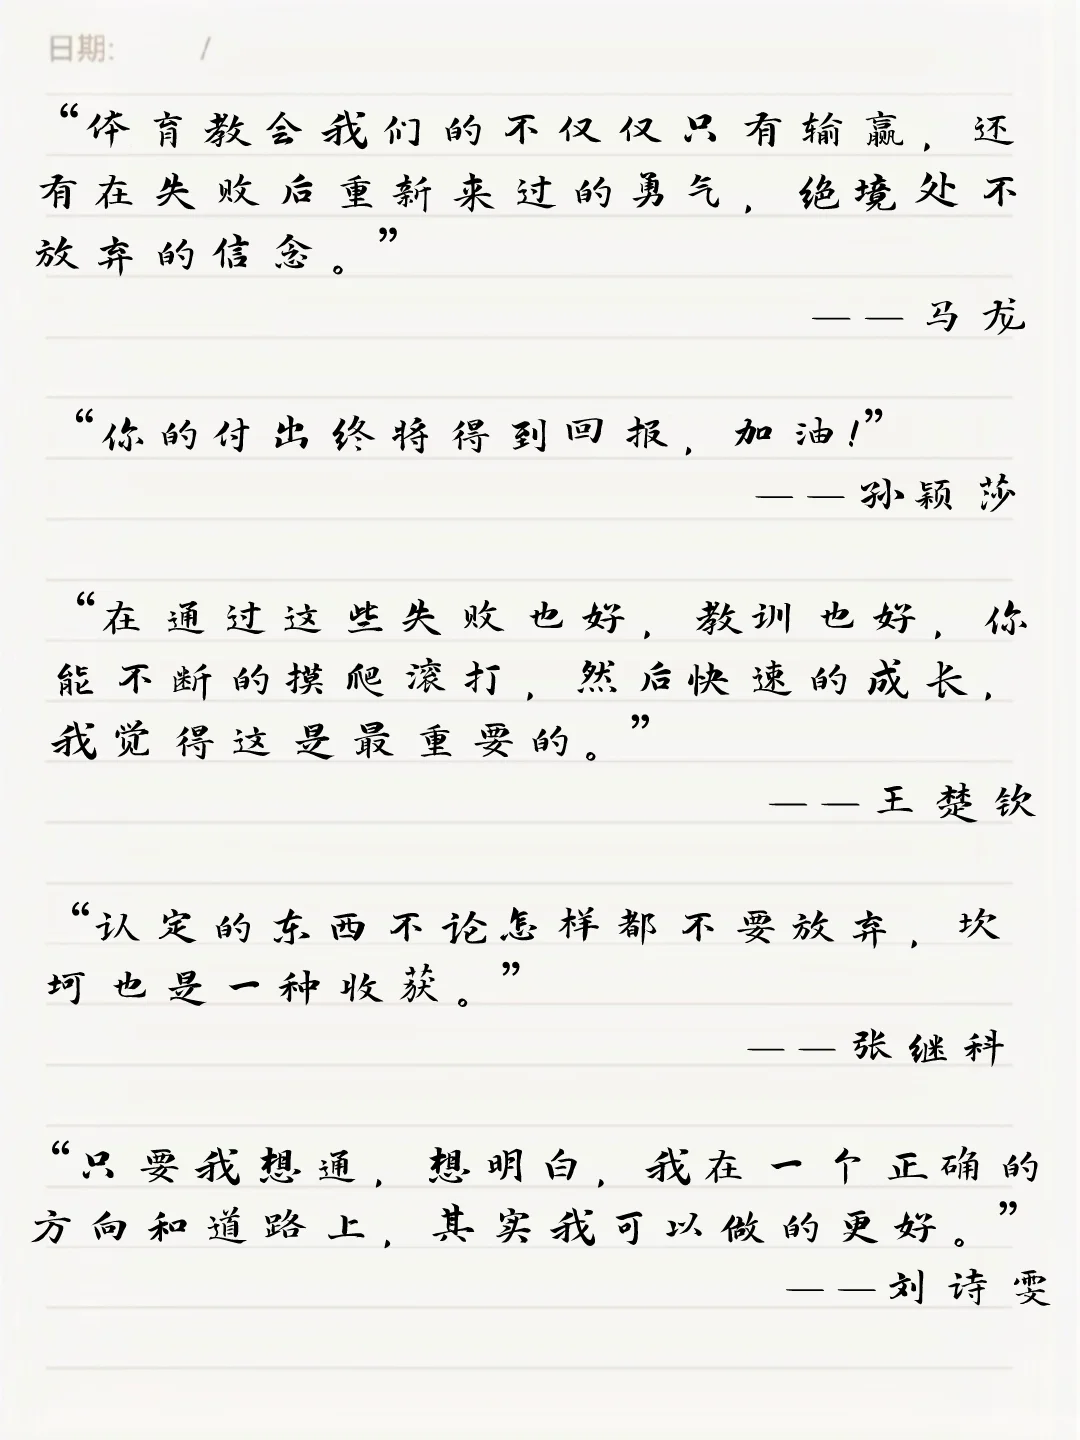 日期: /
“体育教会我们的不仅仅只有输赢，还
有在失败后重新来过的勇气，绝境处不
放弃的信念。”
——马龙
“你的付出终将得到回报，加油！”
——孙颖莎
“在通过这些失败也好，教训也好，你
能不断的摸爬滚打，然后快速的成长，
我觉得这是最重要的。”
——王楚钦
“认定的东西不论怎样都不要放弃，坎
坷也是一种收获。”
——张继科
“只要我想通，想明白，我在一个正确的
方向和道路上，其实我可以做的更好。”
——刘诗雯